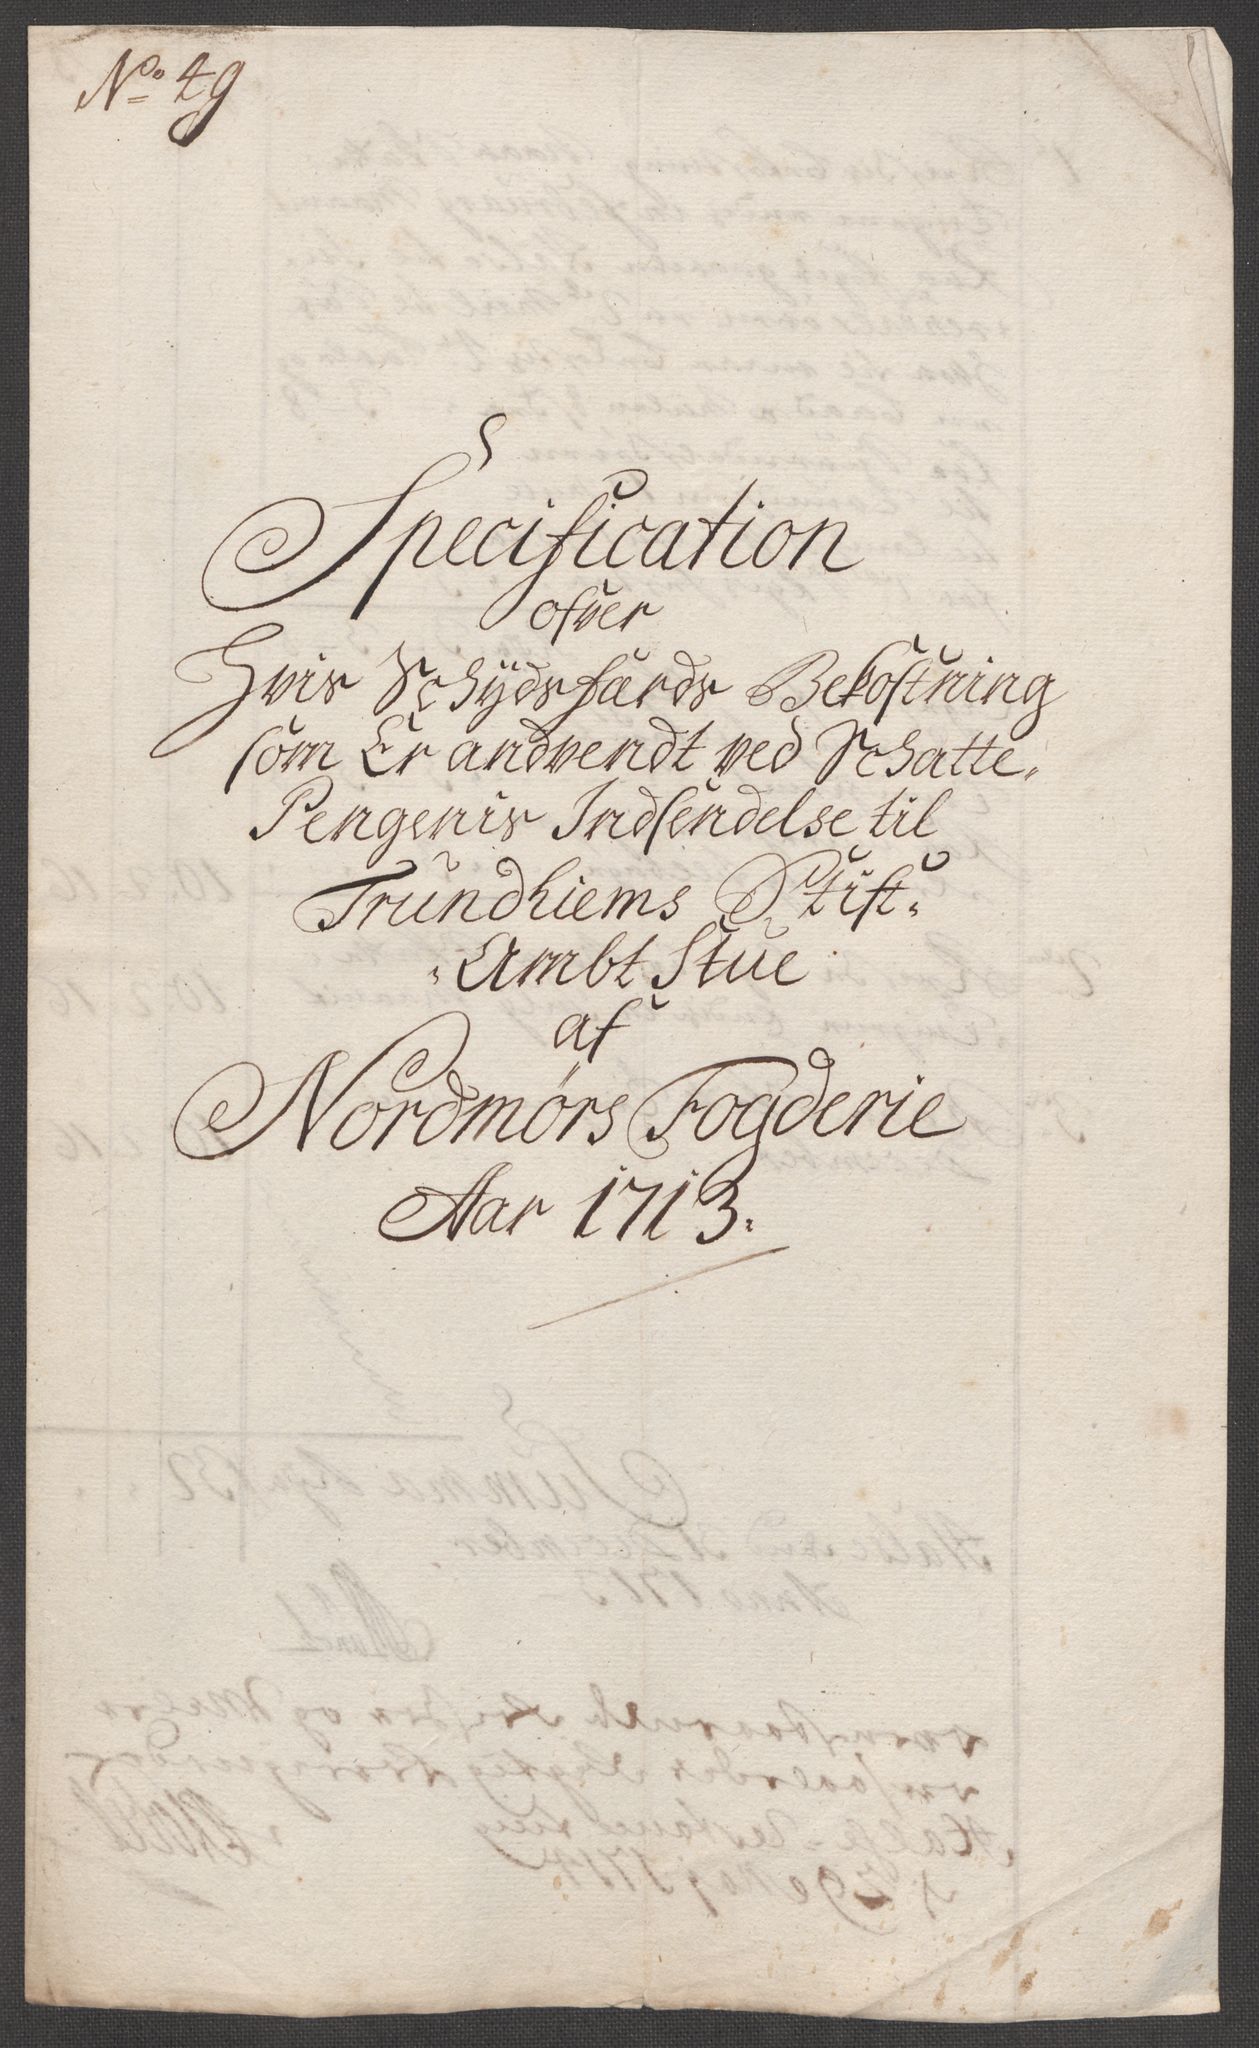 No 49
Specification
ofver
Hvis Schydsfærds Bekostning
som Er andvendt ved Schatte,
Pengenis Indsendelse til
Trundhiems Stift,
Ambt Stue
af
Nordmørs Fogderie
Aar 1713.